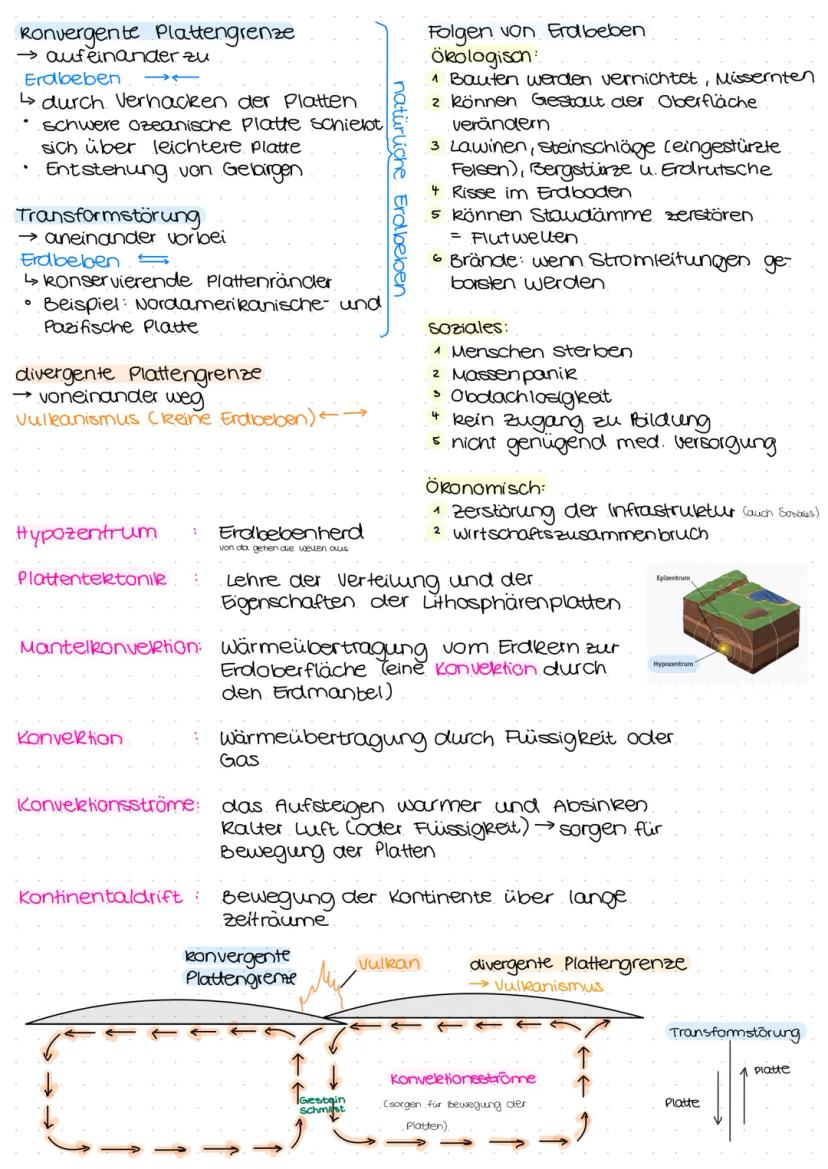 Konvergente Plattengrenze
→ aufeinander zu
Erdbeben →←
↳ durch Verhacken der Platten
• schwere ozeanische Platte schiebt
sich über leichtere Platte
• Entstehung von Gebirgen
Transformstörung
→ aneinander vorbei
Erdbeben ⇆
↳ konservierende Plattenränder
• Beispiel: Nordamerikanische- und
Pazifische Platte
natürliche Erdbeben
divergente Plattengrenze
→ voneinander weg
Vulkanismus (keine Erdbeben) ← →
Folgen von Erdbeben
Ökologisch:
1 Bauten werden vernichtet, Missernten
2 können Gestalt der Oberfläche
verändern
3 Lawinen, Steinschläge (eingestürzte
Felsen), Bergstürze u. Erdrutsche
4 Risse im Erdboden
5 können Staudämme zerstören
= Flutwellen
6 Brände: wenn Stromleitungen ge-
borsten werden
Soziales:
1 Menschen sterben
2 Massenpanik
3 Obdachlosigkeit
4 kein Zugang zu Bildung
5 nicht genügend med. Versorgung
Ökonomisch:
1 Zerstörung der Infrastruktur (auch Soziales)
2 Wirtschaftszusammenbruch
Hypozentrum : Erdbebenherd
von da gehen die Wellen aus
Plattentektonik : Lehre der Verteilung und der
Eigenschaften der Lithosphärenplatten
Epizentrum
Hypozentrum
Mantelkonvektion: Wärmeübertragung vom Erdkern zur
Erdoberfläche (eine Konvektion durch
den Erdmantel)
Konvektion : Wärmeübertragung durch Flüssigkeit oder
Gas
Konvektionsströme: das Aufsteigen warmer und Absinken
kalter Luft (oder Flüssigkeit) → sorgen für
Bewegung der Platten
Kontinentaldrift : Bewegung der Kontinente über lange
Zeiträume
konvergente
Plattengrenze
Vulkan
divergente Plattengrenze
→ Vulkanismus
Transformstörung
Platte
Platte
Konvektionsströme
(sorgen für Bewegung der
Platten)
Gestein
schmilzt